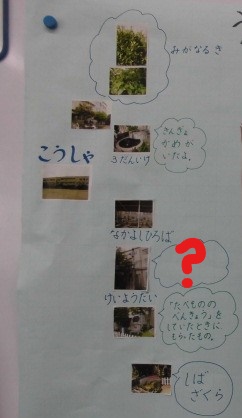 みがなるき
きんぎょ
かめが
いたよ。
3だんいけ
こうしゃ
なかよしひろば
?
けいようだい
「たべものの
べんきょう」を
していたときに
もらったもの。
しば
ざくら